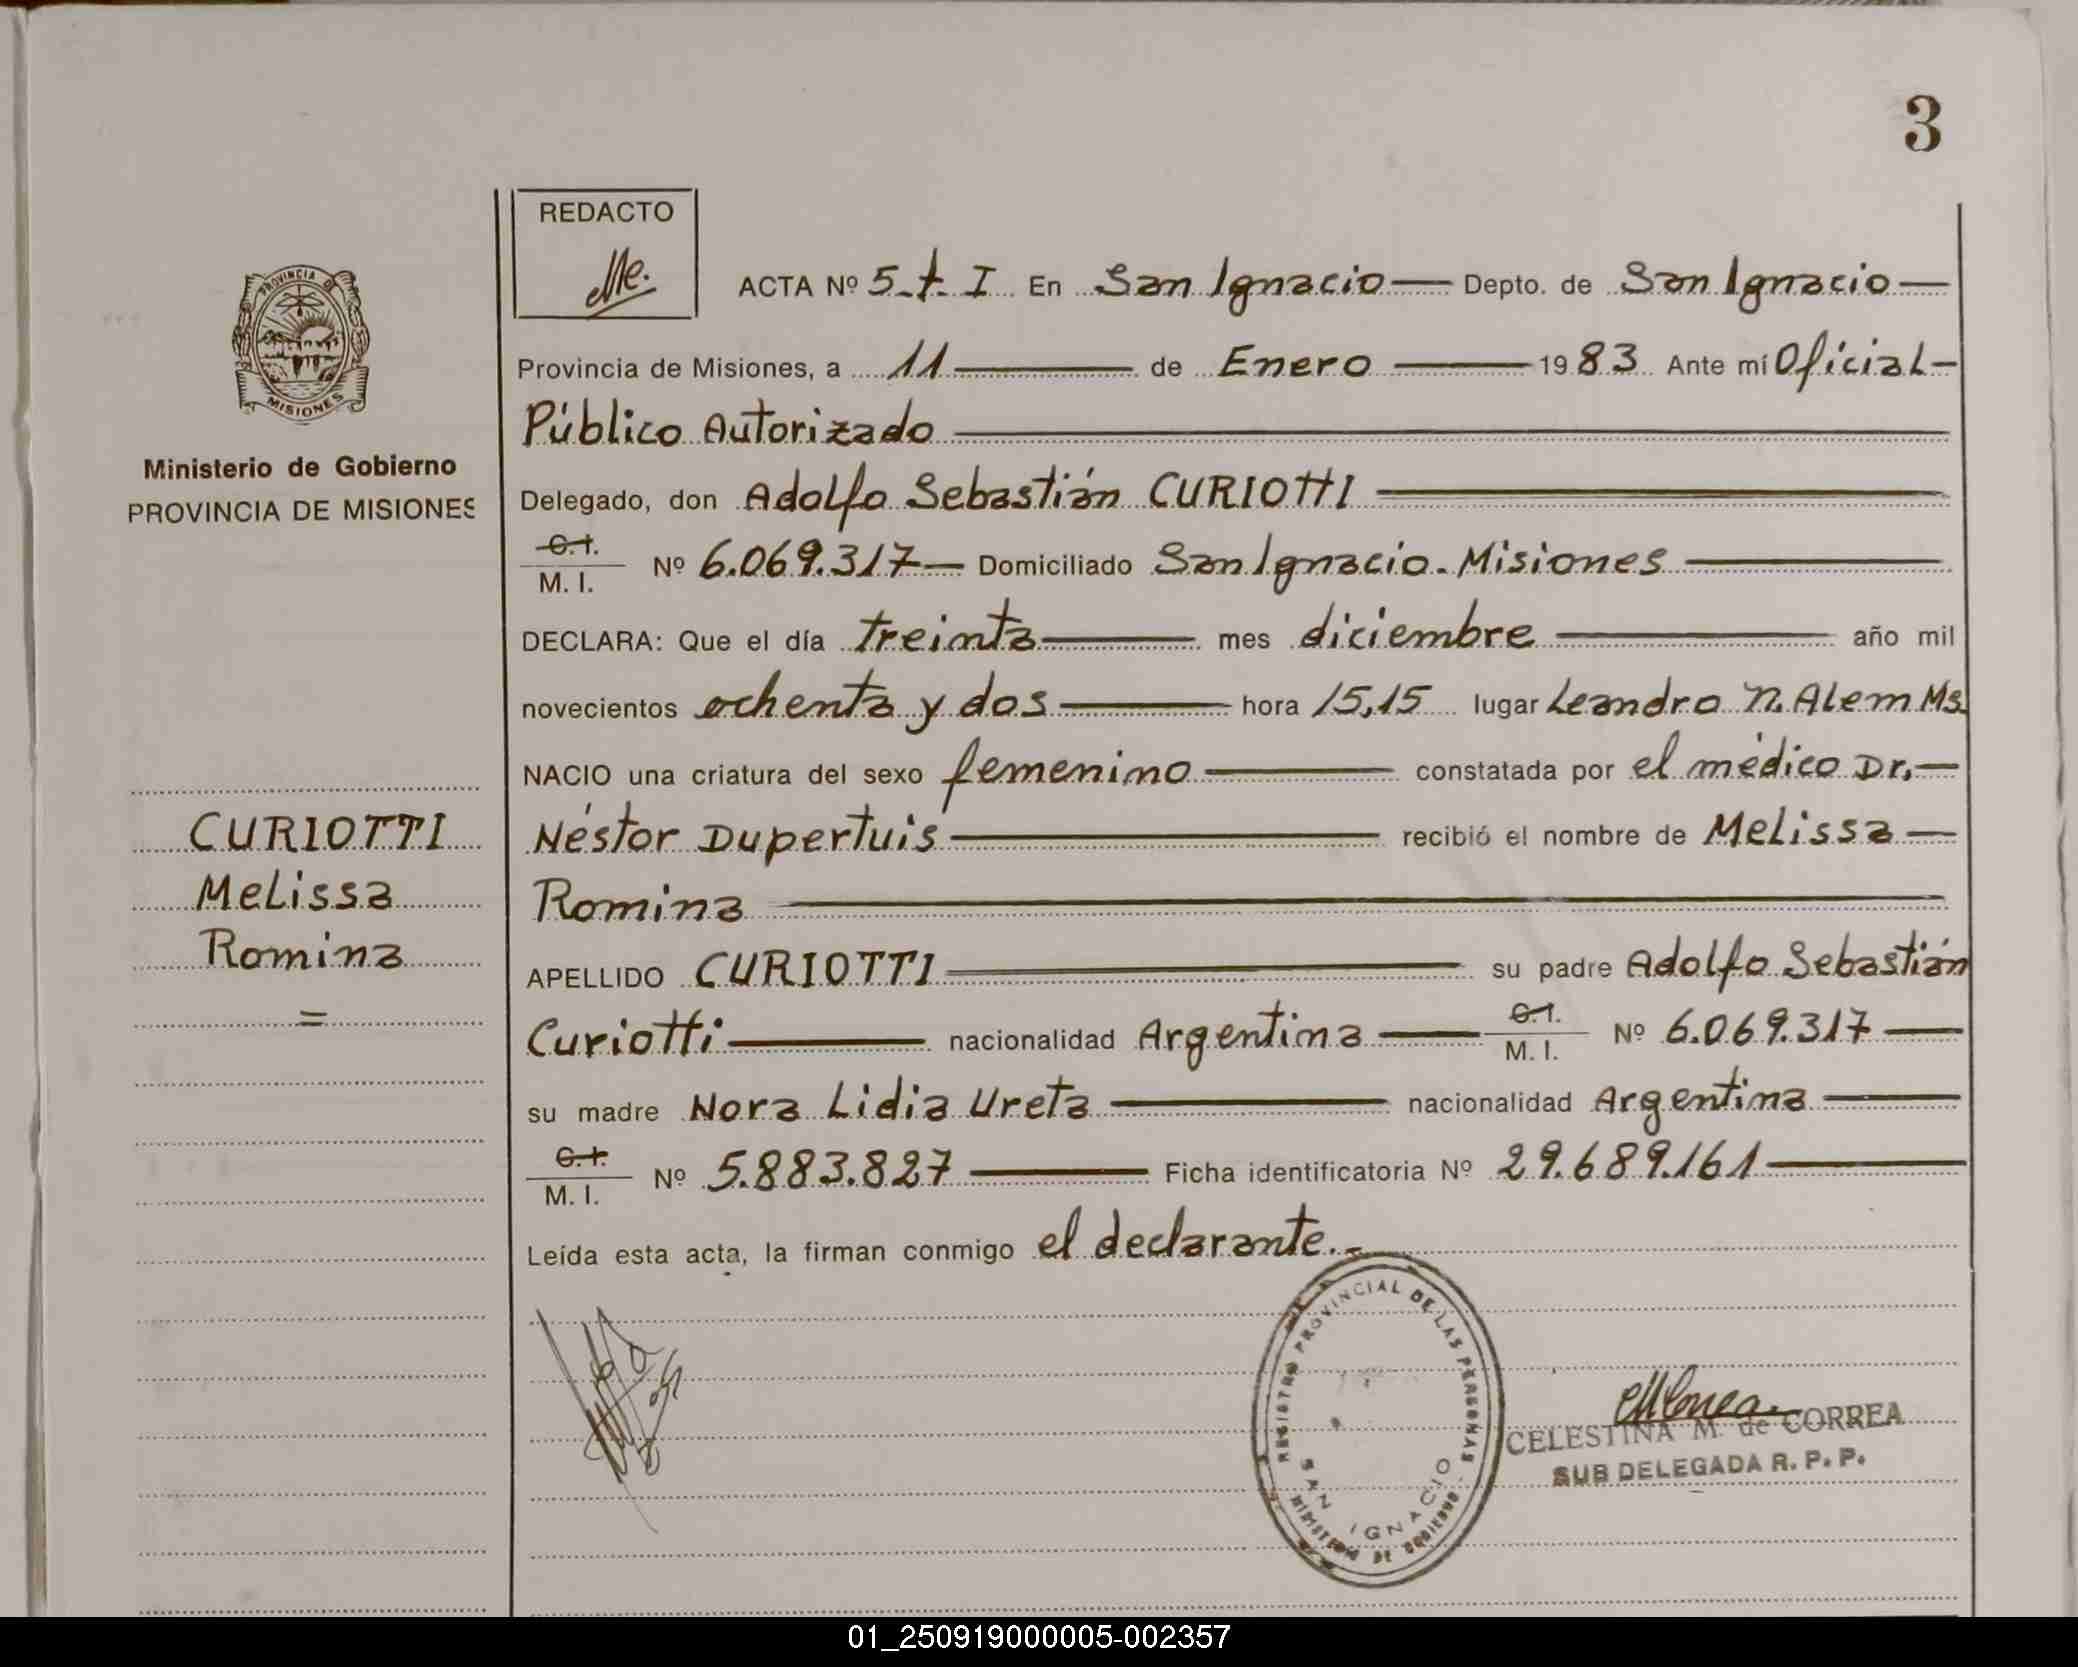 3
REDACTO
ACTA Nº 5-t-I En San Ignacio Depto. de San Ignacio
Provincia de Misiones, a 11 de Enero 1983 Ante mí Oficial-
Público Autorizado
Delegado, don Adolfo Sebastián CURIOTTI
C.I.
M. I. Nº 6.069.317 Domiciliado San Ignacio. Misiones
DECLARA: Que el día treinta mes diciembre año mil
novecientos ochenta y dos hora 15,15 lugar Leandro N. Alem Ms.
NACIO una criatura del sexo femenino constatada por el médico Dr.
Néstor Dupertuis recibió el nombre de Melissa
Romina
APELLIDO CURIOTTI su padre Adolfo Sebastián
Curiotti nacionalidad Argentina C.I. M. I. Nº 6.069.317
su madre Nora Lidia Ureta nacionalidad Argentina
C.I.
M. I. Nº 5.883.827 Ficha identificatoria Nº 29.689.161
Leída esta acta, la firman conmigo el declarante.-
PROVINCIA DE
MISIONES
Ministerio de Gobierno
PROVINCIA DE MISIONES
CURIOTTI
Melissa
Romina
=
REGISTRO PROVINCIAL DE LAS PERSONAS
SAN IGNACIO
MINISTERIO DE GOBIERNO
CELESTINA M. de CORREA
SUB DELEGADA R. P. P.
01_250919000005-002357